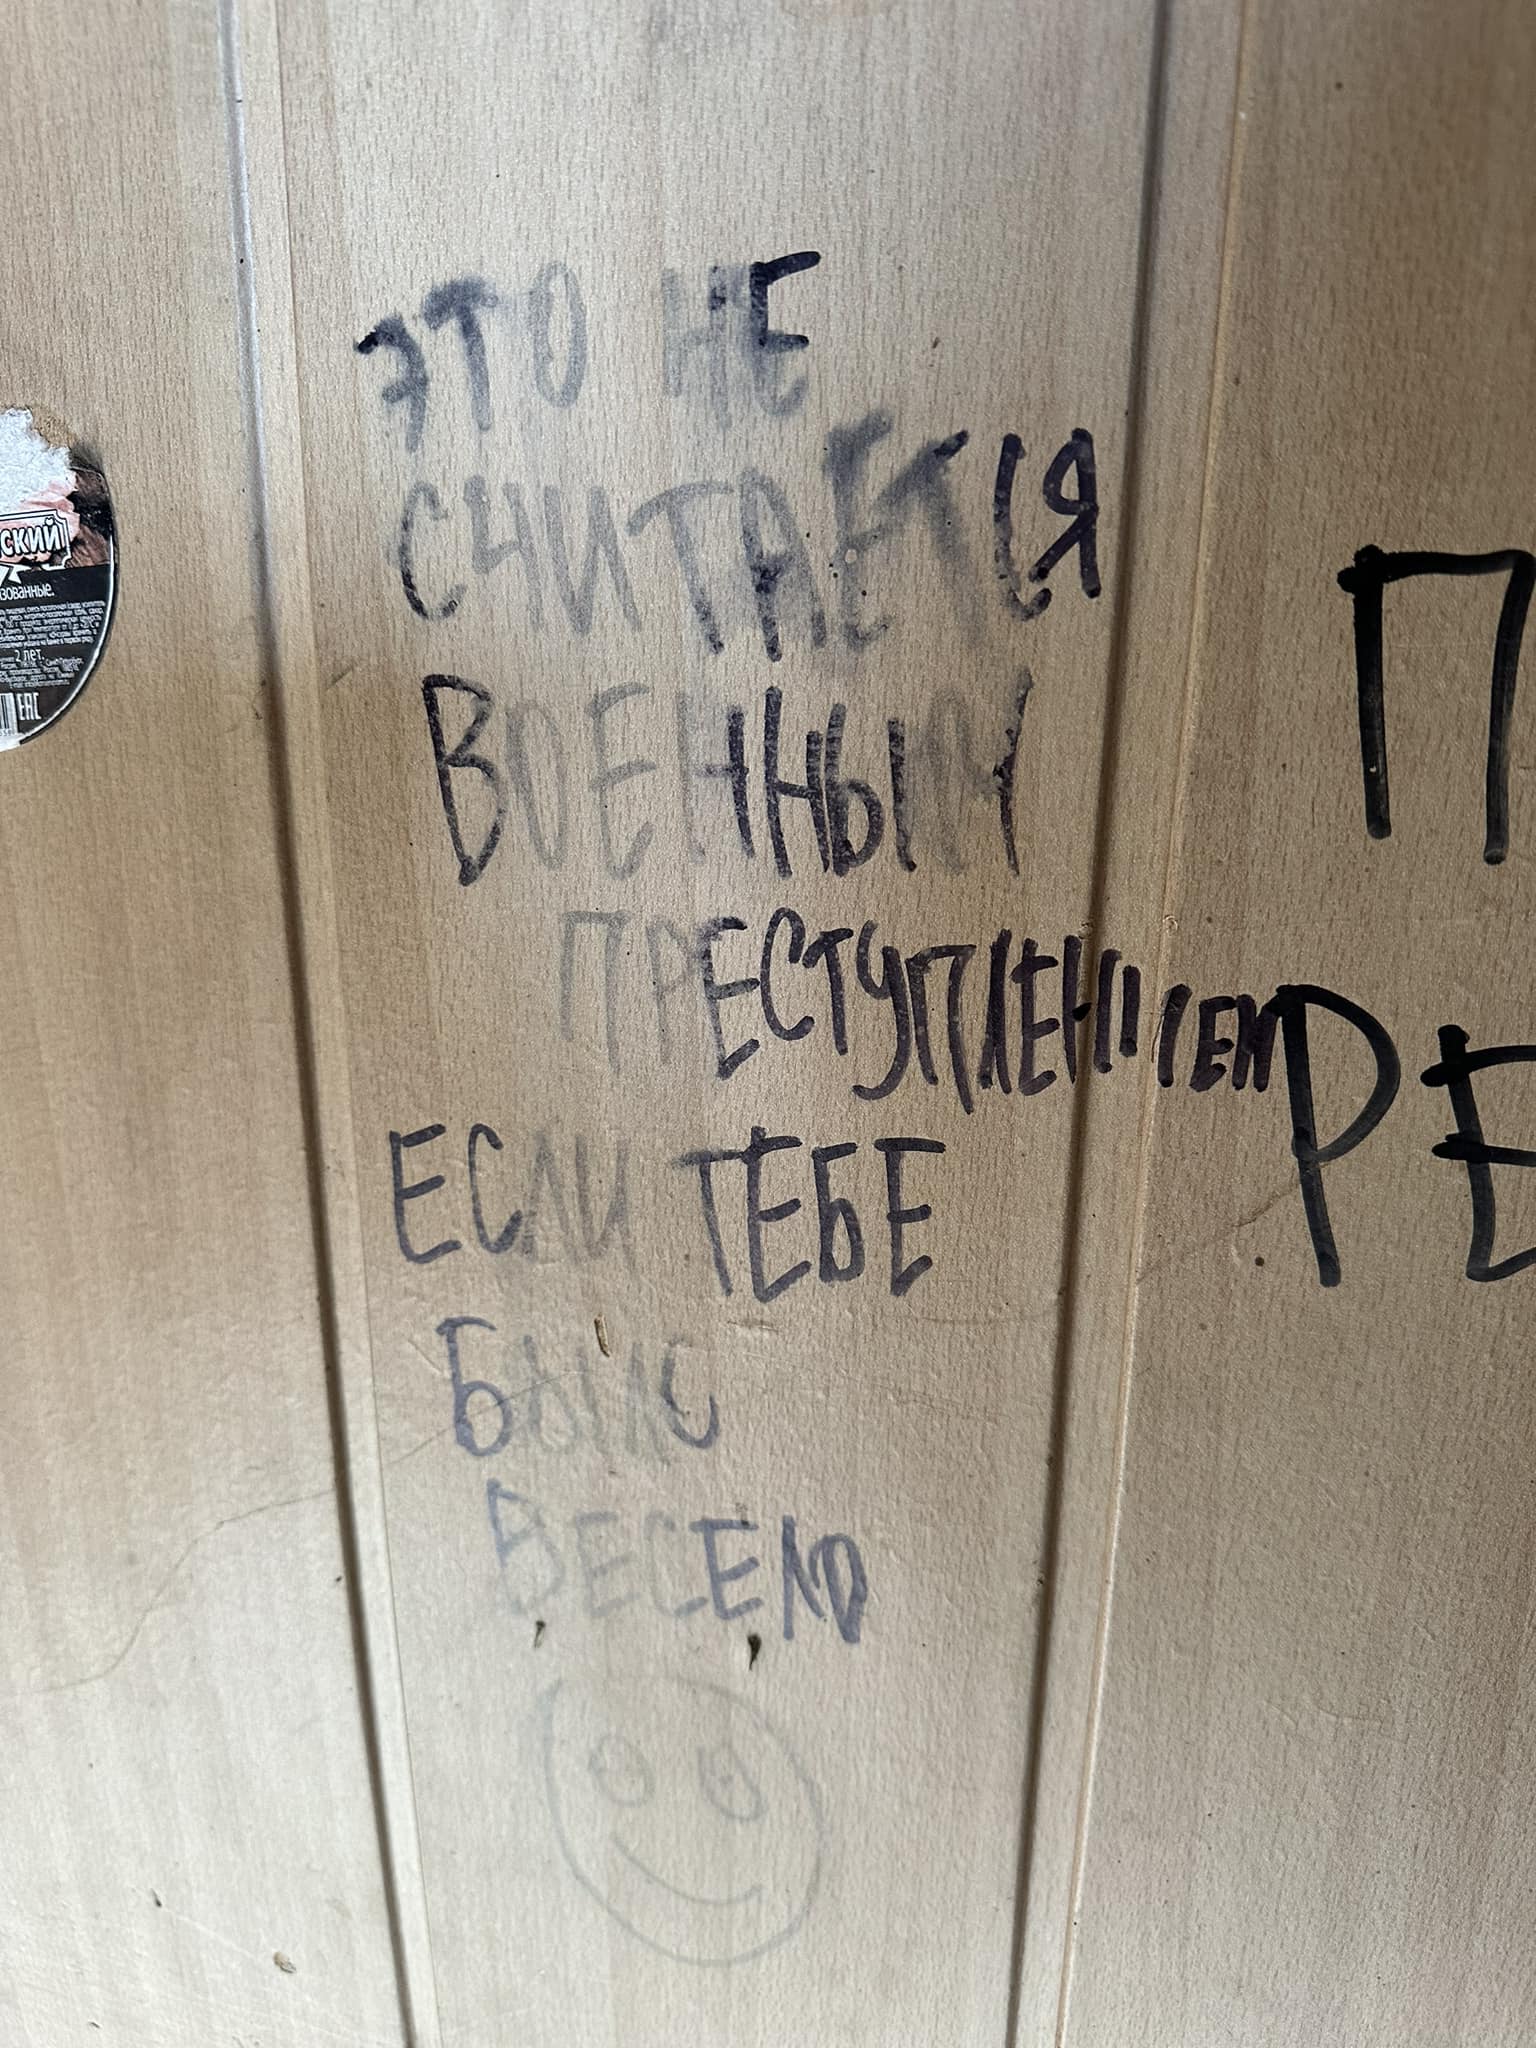 ЭТО НЕ
СЧИТАЕТСЯ
ВОЕННЫМ
ПРЕСТУПЛЕНИЕМ
ЕСЛИ ТЕБЕ
БЫЛО
ВЕСЕЛО
П
РЕ
СКИЙ
2 лет.
EAC